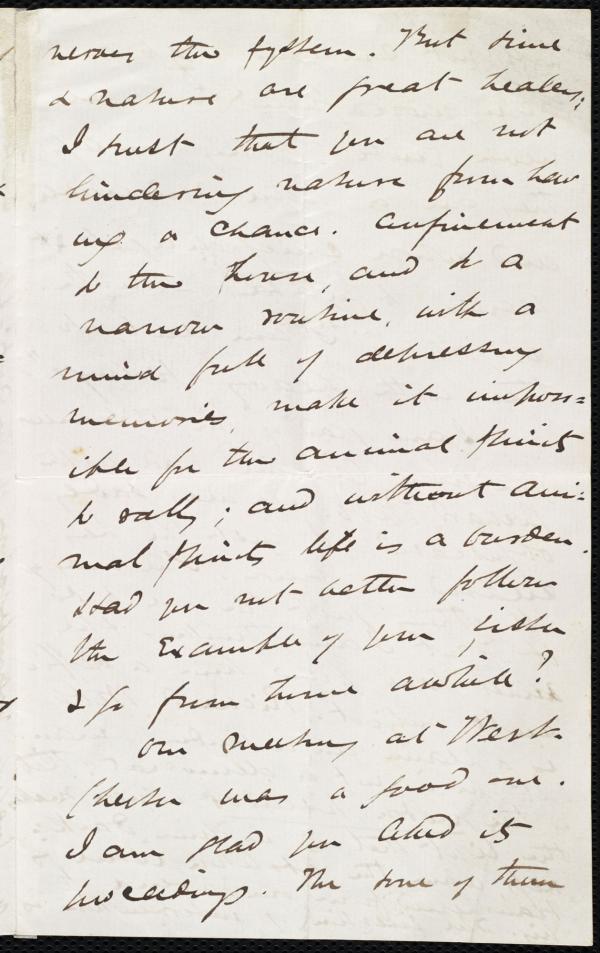 nerves the system. But time
& nature are great healers;
I trust that you are not
hindering nature from hav
ing a chance. Confinement
to the house, and to a
narrow routine, with a
mind full of depressing
memories, make it imposs=
ible for the animal spirits
to rally; and without ani=
mal spirits life is a burden.
Had you not better follow
the example of your sister
& go from home awhile?
Our meeting at West-
Chester was a good one.
I am glad you liked its
proceedings. The tone of them